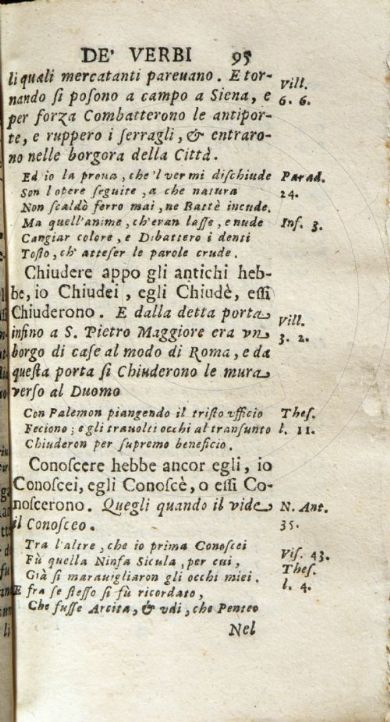 DE' VERBI 95
li quali mercatanti pareuano. E tor-
nando si posono a campo a Siena, e Vill.
per forza Combatterono le antipor- 6. 6.
te, e ruppero i serragli, & entraro-
no nelle borgora della Città.
Ed io la proua, che'l ver mi dischiude Parad.
Son l'opere seguite, a che natura 24.
Non scaldò ferro mai, ne Battè incude.
Ma quell'anime, ch'eran lasse, e nude Inf. 3.
Cangiar colore, e Dibattero i denti
Tosto, ch'atteser le parole crude.
Chiudere appo gli antichi heb-
be, io Chiudei, egli Chiudè, essi
Chiuderono. E dalla detta porta
infino a S. Pietro Maggiore era vn Vill.
borgo di case al modo di Roma, e da 3. 2.
questa porta si Chiuderono le mura
verso al Duomo
Con Palemon piangendo il tristo vfficio Thes.
Feciono; e gli trauolti occhi al transunto l. 11.
Chiuderon per supremo beneficio.
Conoscere hebbe ancor egli, io
Conoscei, egli Conoscè, o essi Co-
noscerono. Quegli quando il vide N. Ant.
il Conosceo. 35.
Tra l'altre, che io prima Conoscei
Fù quella Ninfa Sicula, per cui, Vis. 43.
Già si marauigliaron gli occhi miei. Thes.
E fra se stesso si fù ricordato, l. 4.
Che fusse Arcita, & vdì, che Penteo
Nel